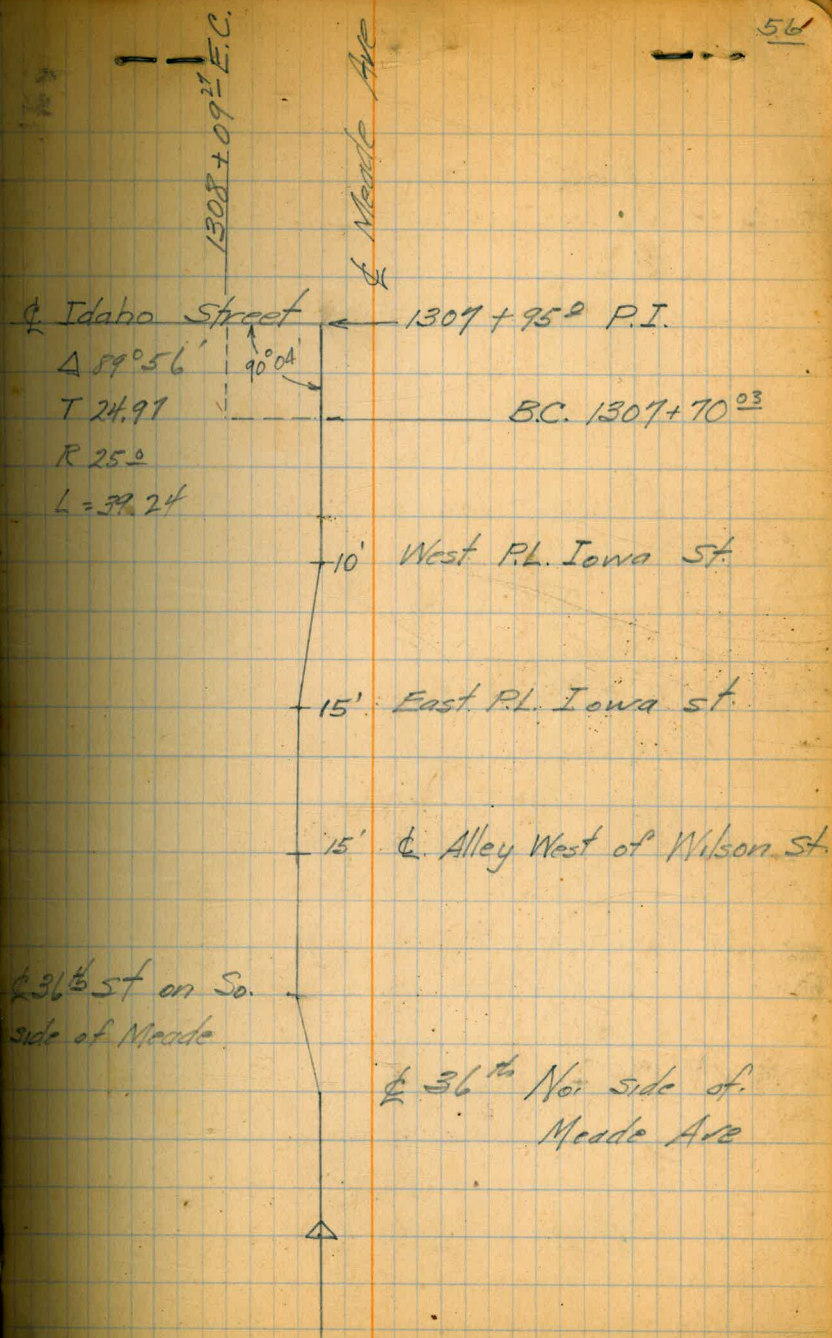 56
1308 + 09 27 E.C.
℄ Meade Ave
℄ Idaho Street
1307 + 95 0 P.I.
Δ 89°56'
90°04'
T 24.97
B.C. 1307 + 70 03
R 25 0
L = 39.24
10' West P.L. Iowa St.
15' East P.L. Iowa st.
15' ℄ Alley West of Wilson St.
℄ 36th St on So.
side of Meade
℄ 36th No. side of
Meade Ave